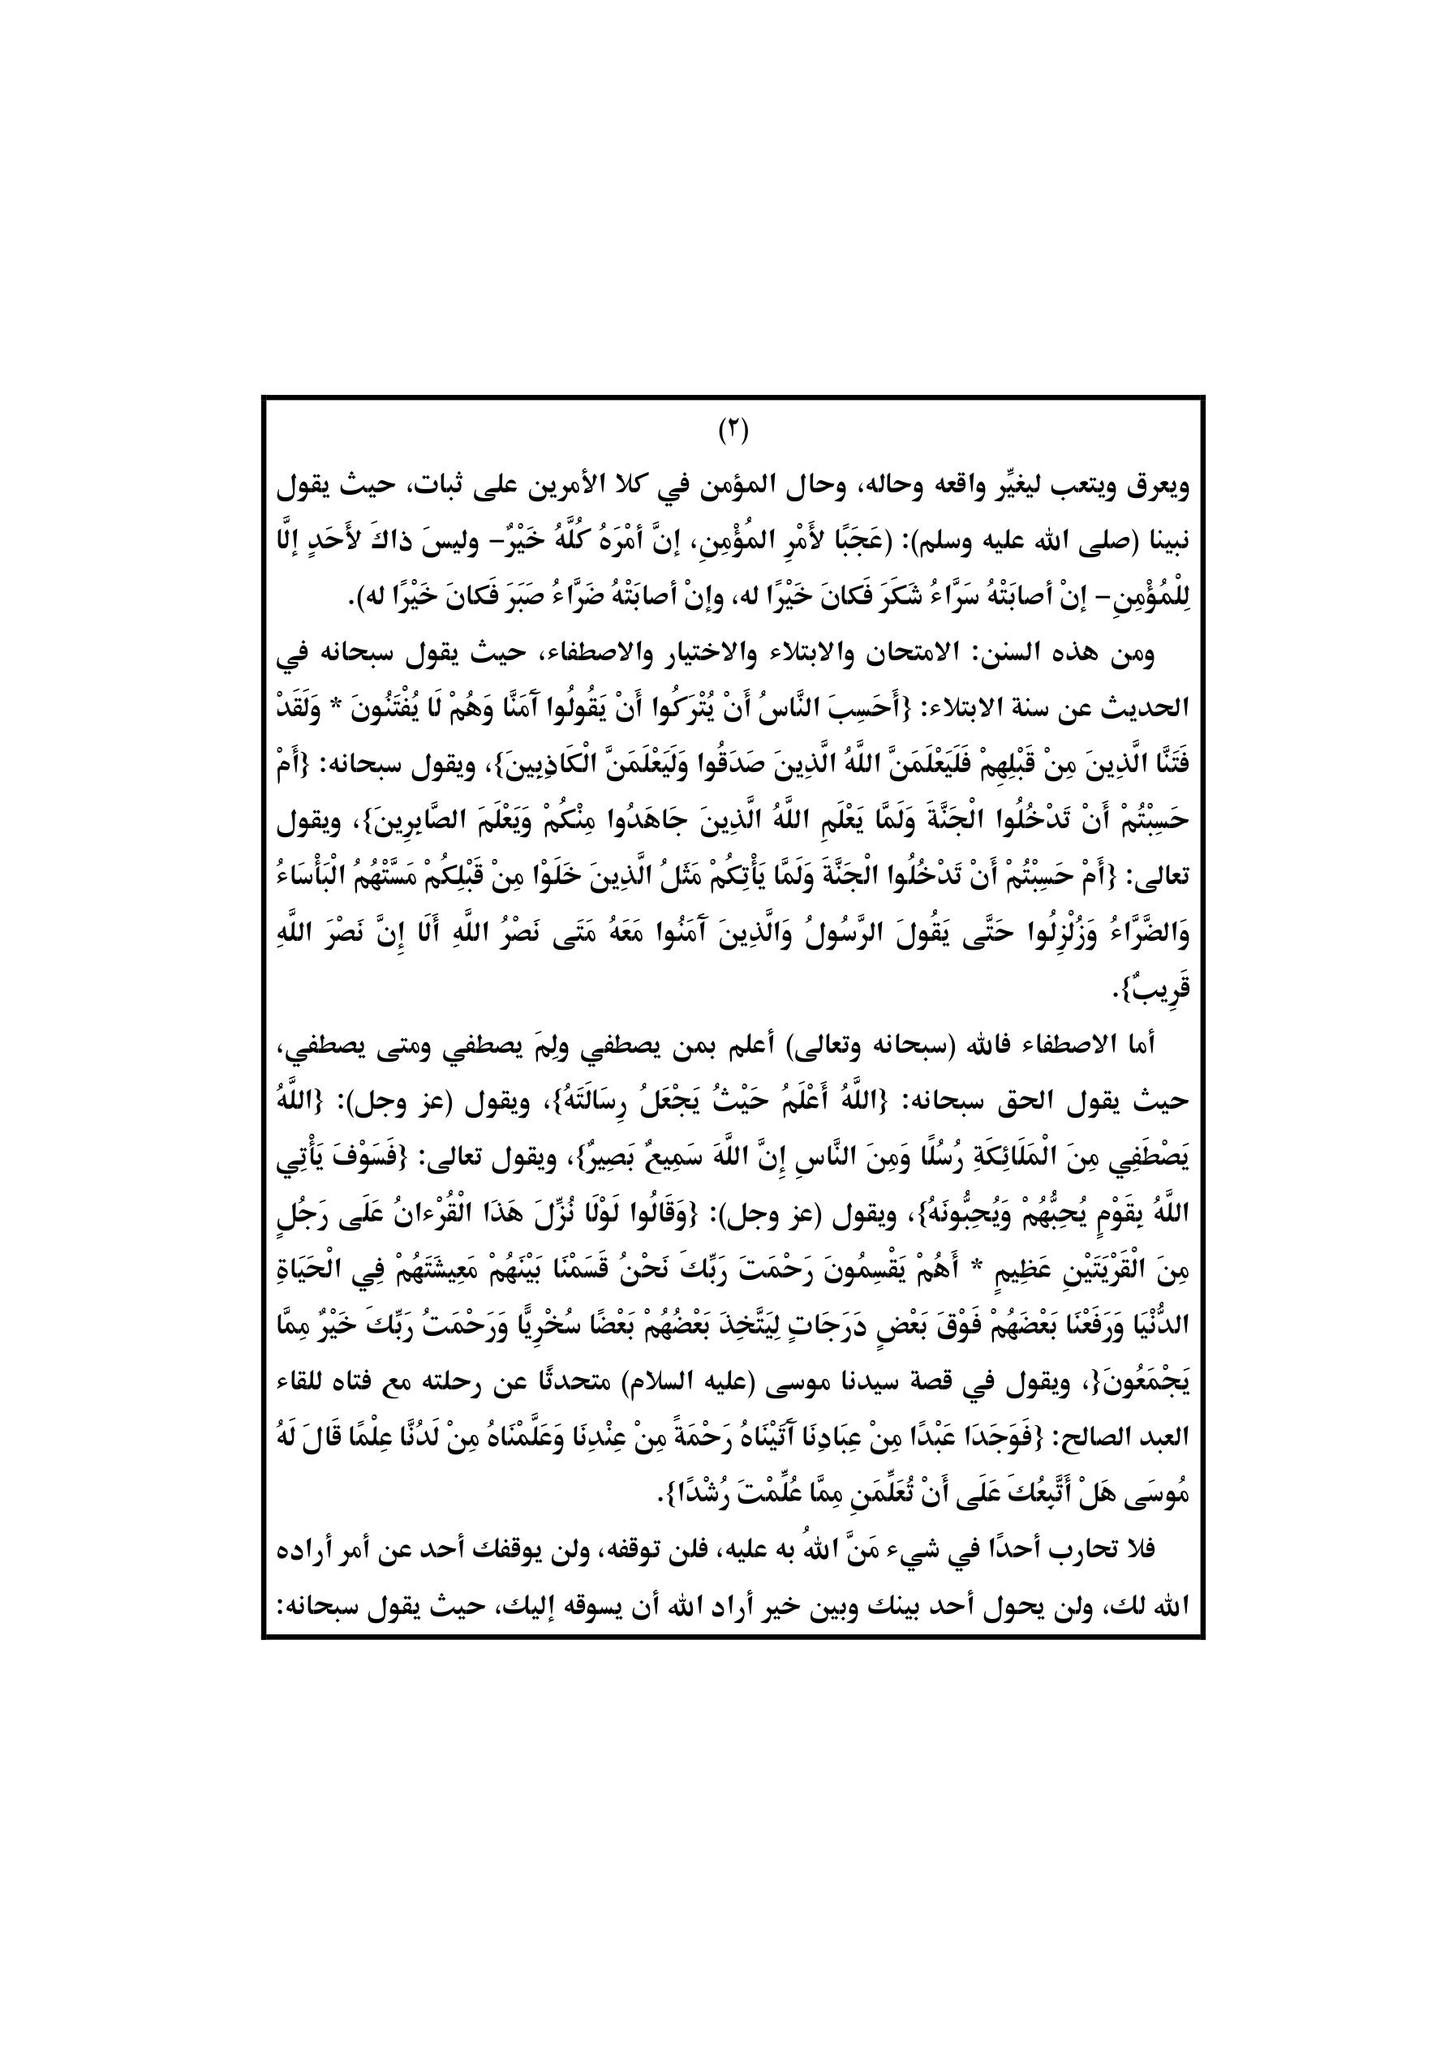 (٢)
ويعرق ويتعب ليغيِّر واقعه وحاله، وحال المؤمن في كلا الأمرين على ثبات، حيث يقول
نبينا (صلى الله عليه وسلم): (عَجَبًا لأَمْرِ المُؤْمِنِ، إنَّ أمْرَهُ كُلَّهُ خَيْرٌ– وليسَ ذاكَ لأَحَدٍ إلَّا
لِلْمُؤْمِنِ– إنْ أصابَتْهُ سَرَّاءُ شَكَرَ فَكانَ خَيْرًا له، وإنْ أصابَتْهُ ضَرَّاءُ صَبَرَ فَكانَ خَيْرًا له).
ومن هذه السنن: الامتحان والابتلاء والاختيار والاصطفاء، حيث يقول سبحانه في
الحديث عن سنة الابتلاء: {أَحَسِبَ النَّاسُ أَنْ يُتْرَكُوا أَنْ يَقُولُوا آَمَنَّا وَهُمْ لَا يُفْتَنُونَ * وَلَقَدْ
فَتَنَّا الَّذِينَ مِنْ قَبْلِهِمْ فَلَيَعْلَمَنَّ اللَّهُ الَّذِينَ صَدَقُوا وَلَيَعْلَمَنَّ الْكَاذِبِينَ}، ويقول سبحانه: {أَمْ
حَسِبْتُمْ أَنْ تَدْخُلُوا الْجَنَّةَ وَلَمَّا يَعْلَمِ اللَّهُ الَّذِينَ جَاهَدُوا مِنْكُمْ وَيَعْلَمَ الصَّابِرِينَ}، ويقول
تعالى: {أَمْ حَسِبْتُمْ أَنْ تَدْخُلُوا الْجَنَّةَ وَلَمَّا يَأْتِكُمْ مَثَلُ الَّذِينَ خَلَوْا مِنْ قَبْلِكُمْ مَسَّتْهُمُ الْبَأْسَاءُ
وَالضَّرَّاءُ وَزُلْزِلُوا حَتَّى يَقُولَ الرَّسُولُ وَالَّذِينَ آَمَنُوا مَعَهُ مَتَى نَصْرُ اللَّهِ أَلَا إِنَّ نَصْرَ اللَّهِ
قَرِيبٌ}.
أما الاصطفاء فالله (سبحانه وتعالى) أعلم بمن يصطفي ولِمَ يصطفي ومتى يصطفي،
حيث يقول الحق سبحانه: {اللَّهُ أَعْلَمُ حَيْثُ يَجْعَلُ رِسَالَتَهُ}، ويقول (عز وجل): {اللَّهُ
يَصْطَفِي مِنَ الْمَلَائِكَةِ رُسُلًا وَمِنَ النَّاسِ إِنَّ اللَّهَ سَمِيعٌ بَصِيرٌ}، ويقول تعالى: {فَسَوْفَ يَأْتِي
اللَّهُ بِقَوْمٍ يُحِبُّهُمْ وَيُحِبُّونَهُ}، ويقول (عز وجل): {وَقَالُوا لَوْلَا نُزِّلَ هَذَا الْقُرْءانُ عَلَى رَجُلٍ
مِنَ الْقَرْيَتَيْنِ عَظِيمٍ * أَهُمْ يَقْسِمُونَ رَحْمَتَ رَبِّكَ نَحْنُ قَسَمْنَا بَيْنَهُمْ مَعِيشَتَهُمْ فِي الْحَيَاةِ
الدُّنْيَا وَرَفَعْنَا بَعْضَهُمْ فَوْقَ بَعْضٍ دَرَجَاتٍ لِيَتَّخِذَ بَعْضُهُمْ بَعْضًا سُخْرِيًّا وَرَحْمَتُ رَبِّكَ خَيْرٌ مِمَّا
يَجْمَعُونَ{، ويقول في قصة سيدنا موسى (عليه السلام) متحدثًا عن رحلته مع فتاه للقاء
العبد الصالح: {فَوَجَدَا عَبْدًا مِنْ عِبَادِنَا آَتَيْنَاهُ رَحْمَةً مِنْ عِنْدِنَا وَعَلَّمْنَاهُ مِنْ لَدُنَّا عِلْمًا قَالَ لَهُ
مُوسَى هَلْ أَتَّبِعُكَ عَلَى أَنْ تُعَلِّمَنِ مِمَّا عُلِّمْتَ رُشْدًا}.
فلا تحارب أحدًا في شيء مَنَّ اللهُ به عليه، فلن توقفه، ولن يوقفك أحد عن أمر أراده
الله لك، ولن يحول أحد بينك وبين خير أراد الله أن يسوقه إليك، حيث يقول سبحانه: